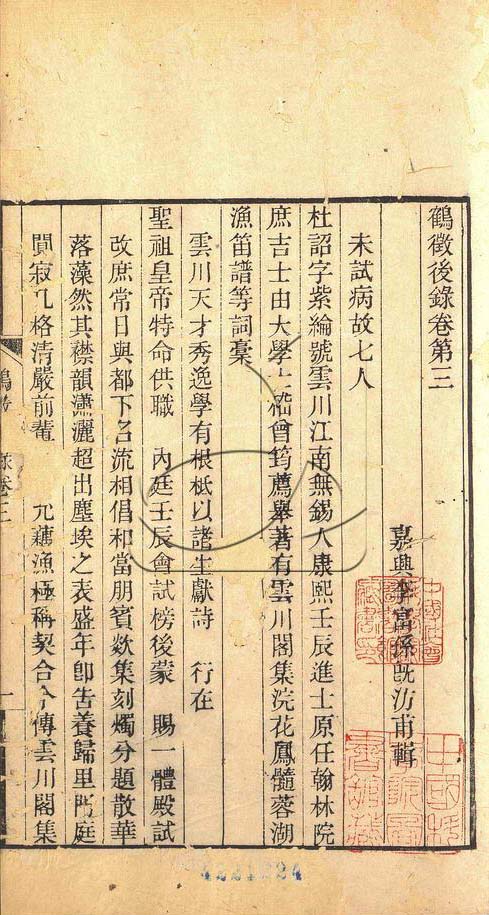 鶴徵後錄卷第三
嘉興李富孫旣汸甫輯
未試病故七人
杜詔字紫綸號雲川江南無錫人康熙壬辰進士原任翰林院
庶吉士由大學士嵇曾筠薦舉著有雲川閣集浣花鳳髓蓉湖
漁笛譜等詞稾
雲川天才秀逸學有根柢以諸生獻詩 行在
聖祖皇帝特命供職 內廷壬辰會試榜後蒙 賜一體殿試
改庶常日與都下名流相倡和當朋賓歘集刻燭分題散華
落藻然其襟韻瀟灑超出塵埃之表盛年卽告養歸里門庭
閴寂風格清嚴前輩 亢藕漁極稱契合今傳雲川閣集
鶴 錄卷三
一
4221224